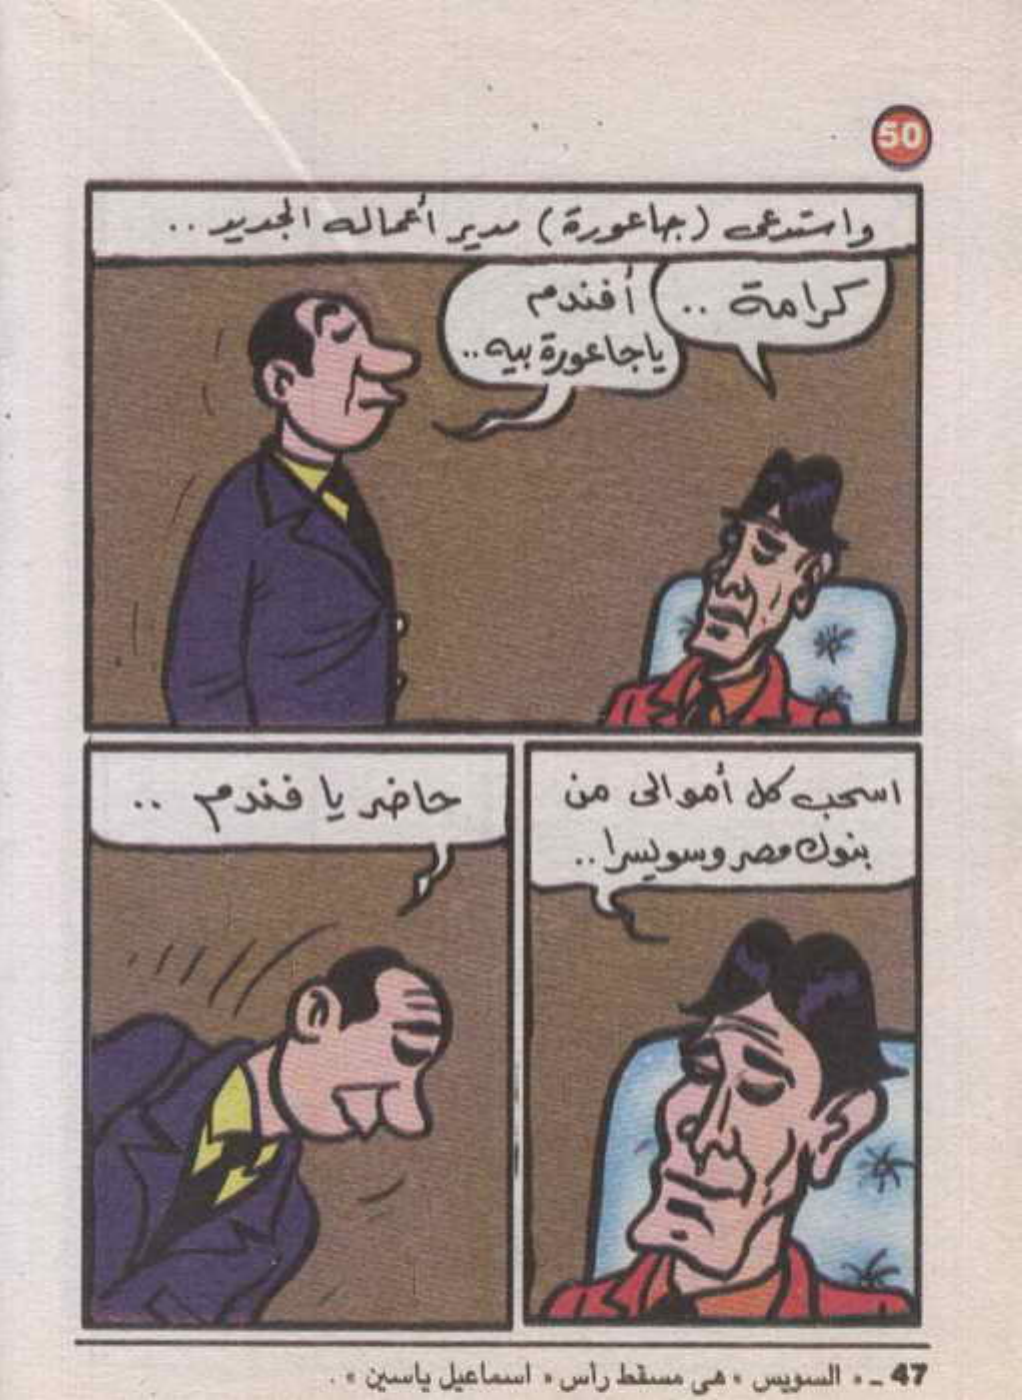 50
واستدعى (جاعورة) مدير أعماله الجديد ..
كرامة ..
أفندم
ياجاعورة بيه ..
اسحب كل أموالى من
بنوك مصر وسويسرا ..
حاضر يا فندم ..
47 ـ « السويس » هى مسقط رأس « اسماعيل ياسين » .